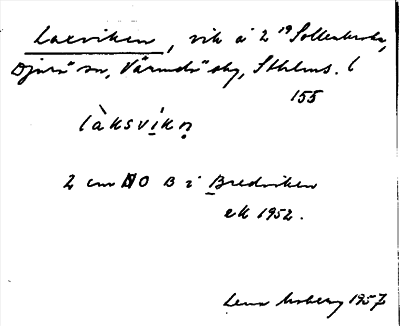 Laxviken, vik å 2 19 Sollenkroka,
Djurö sn, Värmdö skg, Sthlms. l
155
làksvikn̥
2 cm NO B i Bredviken
ek 1952.
Lena Moberg 1957